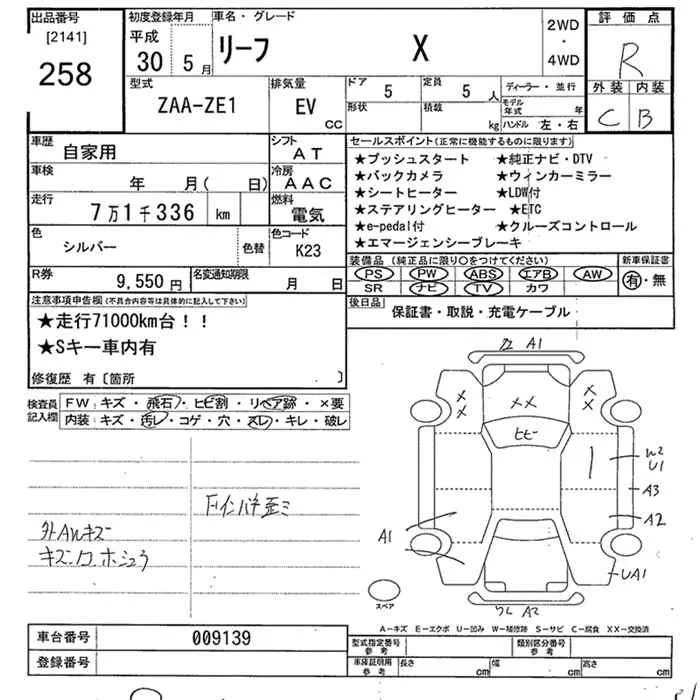 出品番号
[2141]
258
初度登録年月
平成
30 5月
車名・グレード
リーフ X
2WD
・
4WD
評価点
R
外装 内装
C B
型式
ZAA-ZE1
排気量
EV
CC
ドア 5
定員 5 人
形状
積載 kg
ディーラー・並行
モデル年式 年
ハンドル 左・右
車歴
自家用
シフト
AT
車検
年 月( 日)
冷房
AAC
走行
7万1千336 km
燃料
電気
色
シルバー
色替
色コード
K23
R券
9,550 円
名変通知期限
月 日
セールスポイント(正常に機能するものに限ります)
★プッシュスタート ★純正ナビ・DTV
★バックカメラ ★ウィンカーミラー
★シートヒーター ★LDW付
★ステアリングヒーター ★ETC
★e-pedal付 ★クルーズコントロール
★エマージェンシーブレーキ
装備品(純正品に限り○をつけてください)
新車保証書
PS PW ABS エアB AW
SR ナビ TV カワ
有・無
後日品
保証書・取説・充電ケーブル
注意事項申告欄(不具合内容等は具体的に記入して下さい)
★走行71000km台!!
★Sキー車内有
修復歴 有〔箇所 〕
検査員記入欄
FW:キズ・飛石・ヒビ割・リペア跡・×要
内装:キズ・汚レ・コゲ・穴・スレ・キレ・破レ
外AWキズ
A1
XX
ヒビー
W2
U1
A3
A2
A1
UA1
A2
スペア
A-キズ E-エクボ U-凹み W-補修跡 S-サビ C-腐食 XX-交換済
車台番号
009139
登録番号
型式指定番号
参考
類別区分番号
参考
車庫証明用
参考
長さ cm
幅 cm
高さ cm